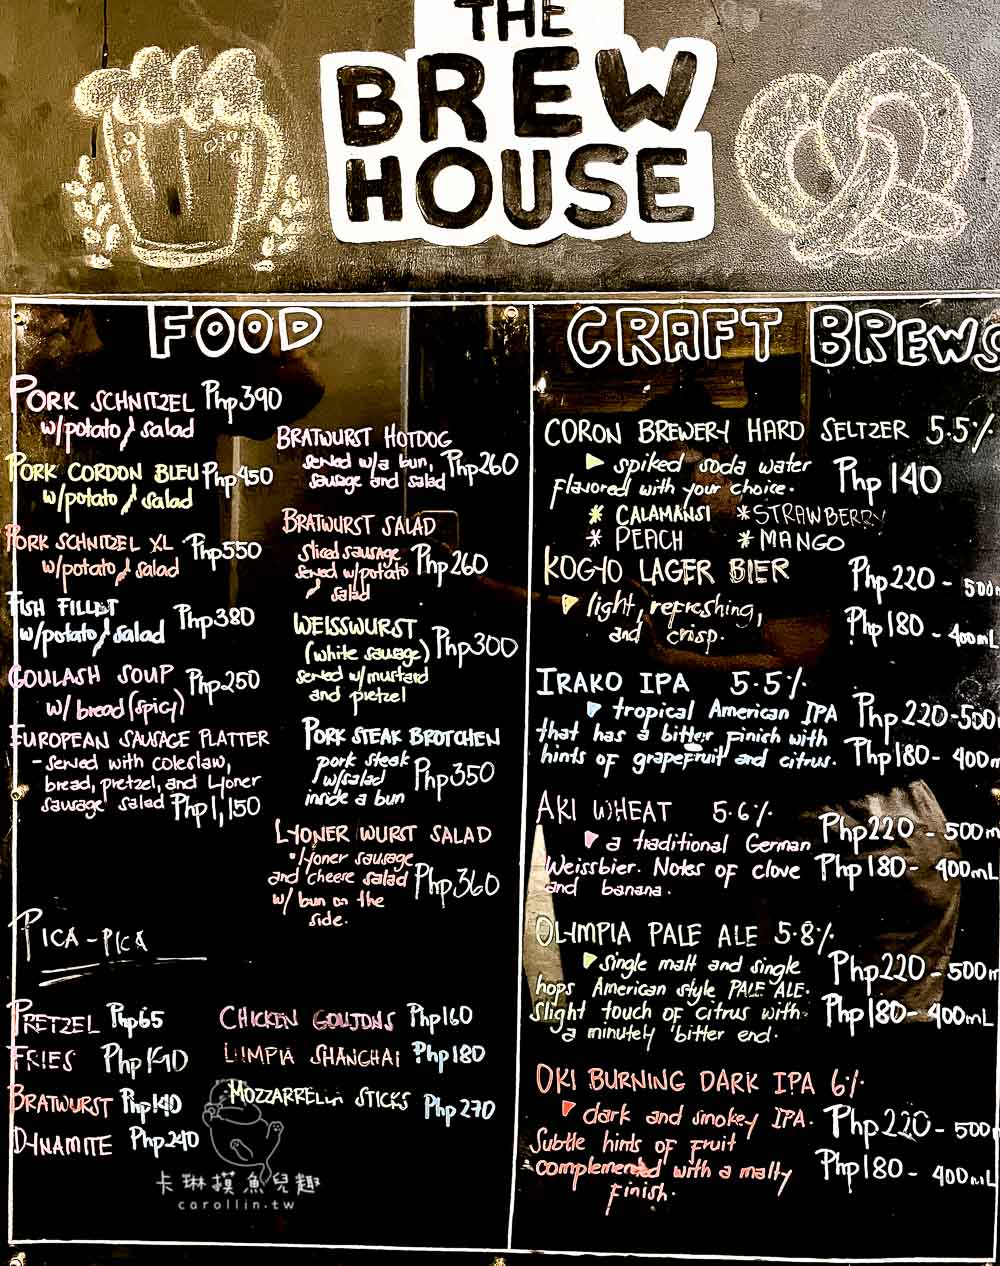 THE
BREW
HOUSE
FOOD
PORK SCHNITZEL Php390
w/potato / salad
PORK CORDON BLEU Php450
w/potato / salad
PORK SCHNITZEL XL Php550
w/potato / salad
FISH FILLET Php380
w/potato / salad
GOULASH SOUP Php250
w/ bread (spicy)
EUROPEAN SAUSAGE PLATTER
- served with coleslaw,
bread, pretzel, and Lyoner
sausage salad Php1,150
BRATWURST HOTDOG
served w/a bun, Php260
sausage and salad
BRATWURST SALAD
sliced sausage Php260
served w/potato
/ salad
WEISSWURST
(white sausage) Php300
served w/mustard
and pretzel
PORK STEAK BROTCHEN
pork steak Php350
w/salad
inside a bun
LYONER WURST SALAD
lyoner sausage
and cheese salad Php360
w/ bun on the
side.
PICA-PICA
PRETZEL Php65
FRIES Php140
BRATWURST Php140
DYNAMITE Php240
CHICKEN GOUJONS Php160
LUMPIA SHANGHAI Php180
MOZZARRELLA STICKS Php270
CRAFT BREWS
CORON BREWERY HARD SELTZER 5.5%
spiked soda water Php 140
flavored with your choice.
* CALAMANSI * STRAWBERRY
* PEACH * MANGO
KOGYO LAGER BIER Php220 - 500m
light, refreshing, Php180 - 400mL
and crisp.
IRAKO IPA 5.5%
tropical American IPA Php220-500
that has a bitter finish with
hints of grapefruit and citrus. Php180- 400m
AKI WHEAT 5.6% Php220 - 500m
a traditional German
Weissbier. Notes of clove Php180- 400mL
and banana.
OLIMPIA PALE ALE 5.8%
single malt and single Php220 - 500m
hops American style PALE ALE.
Slight touch of citrus with Php180- 400mL
a minutely bitter end.
OKI BURNING DARK IPA 6%
dark and smokey IPA. Php220 - 500m
Subtle hints of fruit
complemented with a malty Php180- 400mL
finish.
卡琳摸魚兒趣
carollin.tw